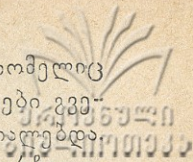 რომელიც
ები გვე-
ალებდა
ეროვნული
ბიბლიოთეკა